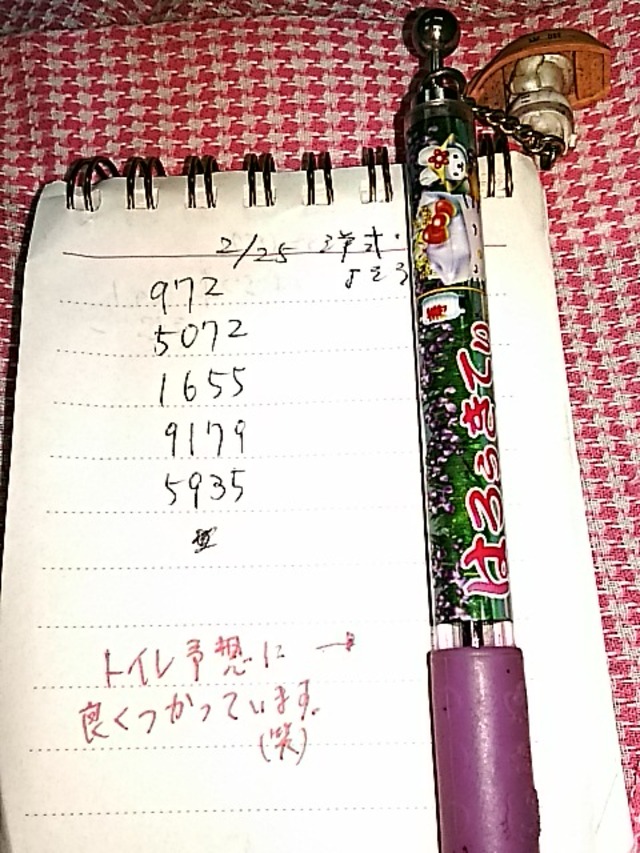 2/25 洋式
よそう
972
5072
1655
9179
5935
トイレ予想に →
良くつかっています.
(笑)
はろうきてぃ